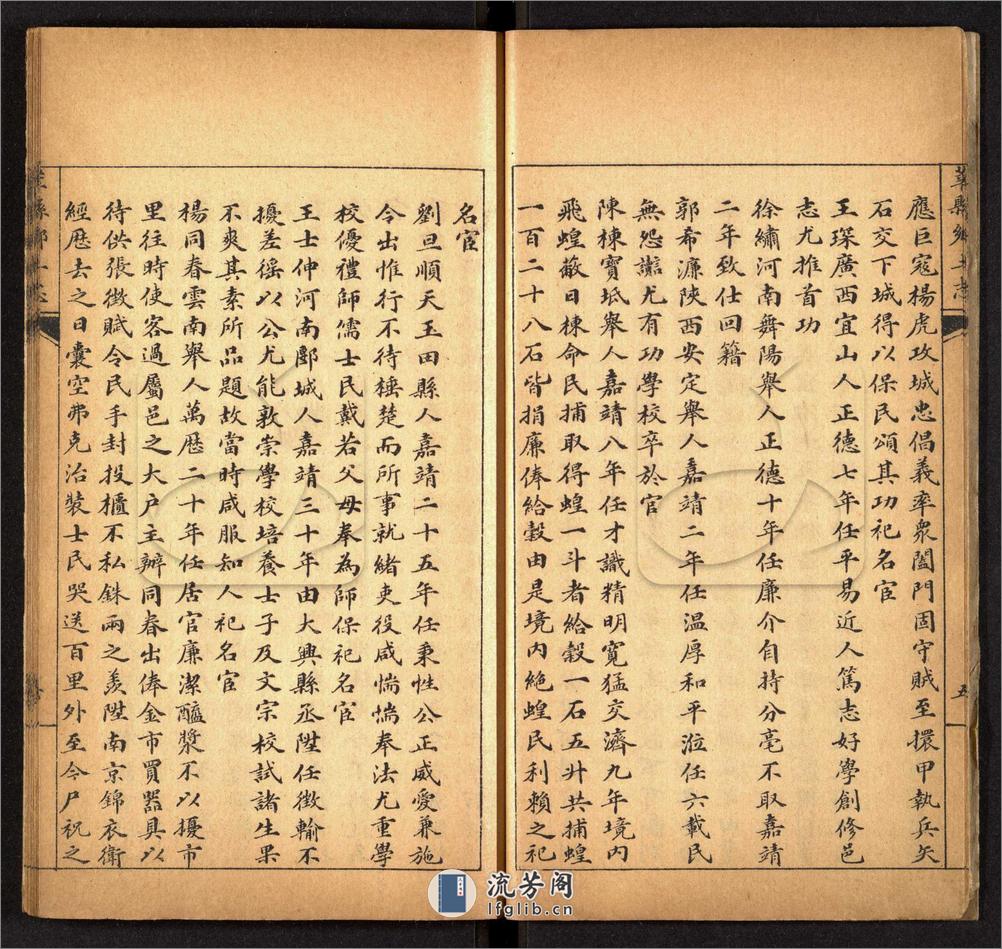 莘縣鄉土志
五
應巨寇楊虎攻城忠倡義率衆闔門固守賊至擐甲執兵矢
石交下城得以保民頌其功祀名宦
王琛廣西宜山人正德七年任平易近人篤志好學創修邑
志尤推首功
徐繡河南舞陽舉人正德十年任廉介自持分毫不取嘉靖
二年致仕回籍
郭希濂陝西安定舉人嘉靖二年任温厚和平涖任六載民
無怨讟尤有功學校卒於官
陳棟寶坻舉人嘉靖八年任才識精明寛猛交濟九年境内
飛蝗蔽日棟命民捕取得蝗一斗者給穀一石五升共捕蝗
一百二十八石皆捐廉俸給穀由是境内絶蝗民利賴之祀
名宦
劉旦順天玉田縣人嘉靖二十五年任秉性公正威愛兼施
令出惟行不待棰楚而所事就緒吏役咸惴惴奉法尤重學
校優禮師儒士民戴若父母奉為師保祀名宦
王士仲河南郾城人嘉靖三十年由大興縣丞陞任徵輸不
擾差徭以公尤能敦崇學校培養士子及文宗校試諸生果
不爽其素所品題故當時咸服知人祀名宦
楊同春雲南舉人萬歴二十年任居官廉潔醯漿不以擾市
里往時使客過屬邑之大户主辦同春出俸金市買器具以
待供張徵賦令民手封投櫃不私銖兩之羡陞南京錦衣衛
經歴去之日囊空弗克治裝士民哭送百里外至今尸祝之
流芳阁
lfglib.cn